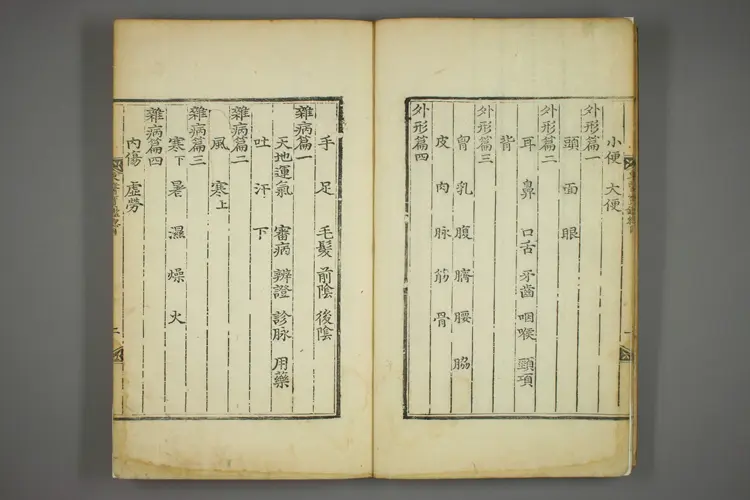 小便 大便
外形篇一
頭 面 眼
外形篇二
耳 鼻 口舌 牙齒 咽喉 頸項
背
外形篇三
胷 乳 腹 臍 腰 脇
皮 肉 脉 筋 骨
外形篇四
手 足 毛髮 前陰 後陰
雜病篇一
天地運氣 審病 辨證 診脉 用藥
吐 汗 下
雜病篇二
風 寒上
雜病篇三
寒下 暑 濕 燥 火
雜病篇四
內傷 虛勞